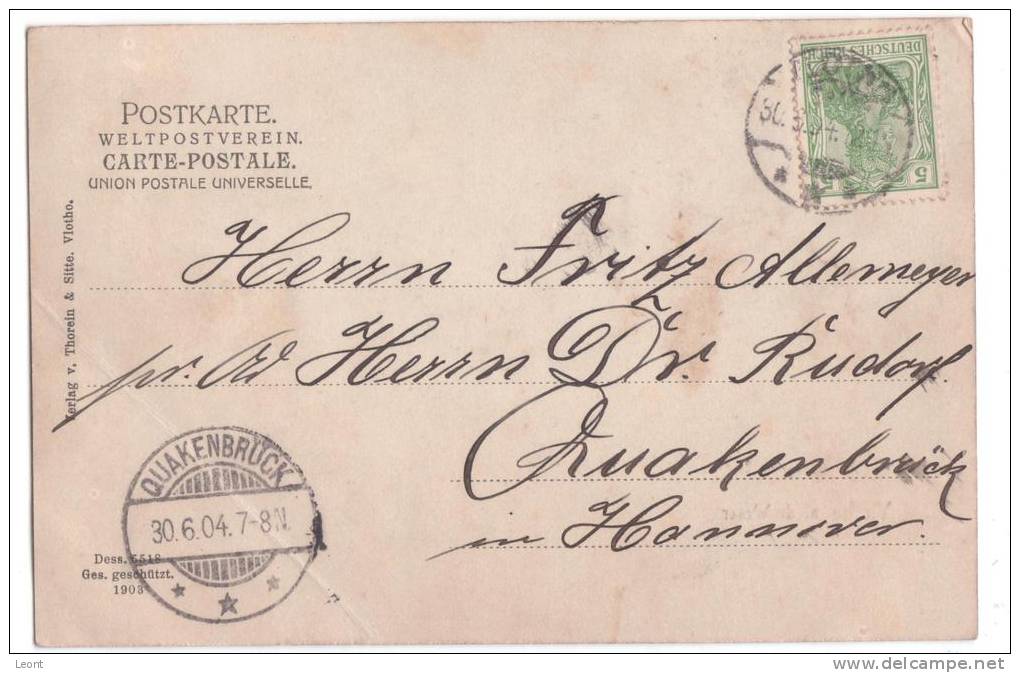 POSTKARTE.
WELTPOSTVEREIN.
CARTE-POSTALE.
UNION POSTALE UNIVERSELLE.
DEUTSCHES
5
5
30. 6.04.
Herrn Fritz Allemeyer
pr. Ad Herrn Dr. Rüdorf.
Quakenbrück
in Hannover.
Verlag v. Thorein & Sitte. Vlotho.
QUAKENBRÜCK
30.6.04.7-8N.
Dess. 5518
Ges. geschützt.
1903
Leont
delcampe.net